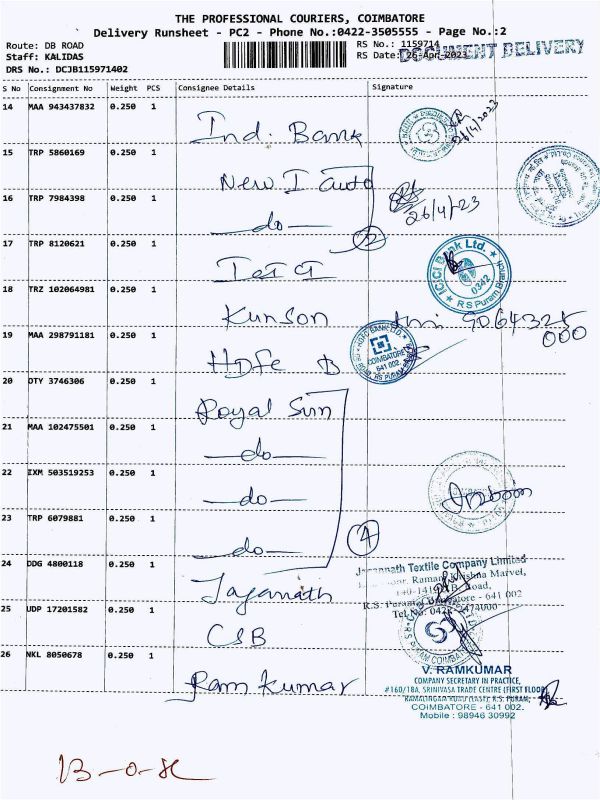 THE PROFESSIONAL COURIERS, COIMBATORE
Delivery Runsheet - PC2 - Phone No.:0422-3505555 - Page No.:2
Route: DB ROAD
Staff: KALIDAS
DRS No.: DCJB115971402
RS No.: 1159714
RS Date: 26-Apr-2023
DOCUMENT DELIVERY
S No Consignment No Weight PCS Consignee Details Signature
14 MAA 943437832 0.250 1 Ind. Bank 26/4/2023
15 TRP 5860169 0.250 1 New I auto
16 TRP 7984398 0.250 1 —do— 2 26/4/23
17 TRP 8120621 0.250 1
ICICI Bank Ltd. 0342 R S Puram Branch
18 TRZ 102064981 0.250 1 Kunson 9064325
000
19 MAA 298791181 0.250 1 HDFC B
HDFC BANK LTD. COIMBATORE 641 002. R.S. PURAM
20 OTY 3746306 0.250 1 Royal Sun
21 MAA 102475501 0.250 1 —do—
22 IXM 503519253 0.250 1 —do—
23 TRP 6079881 0.250 1 —do— 4
24 DDG 4800118 0.250 1 Jaganath
Jagannath Textile Company Limited
Raman Krishna Marvel,
Road,
R.S. Puram, Coimbatore - 641 002
Tel No: 0422-2474000
25 UDP 17201582 0.250 1 CSB
26 NKL 8050678 0.250 1 Ram Kumar
V. RAMKUMAR
COMPANY SECRETARY IN PRACTICE,
#160/18A, SRINIVASA TRADE CENTRE (FIRST FLOOR)
RAMALINGAM ROAD (EAST), R.S. PURAM,
COIMBATORE - 641 002.
Mobile : 98946 30992
13-0-